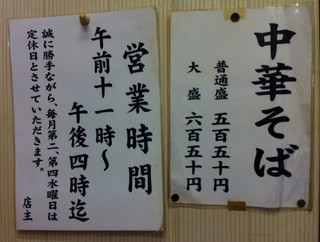 中華そば
普通盛 五百五十円
大盛 六百五十円
営業時間
午前十一時～
午後四時迄
誠に勝手ながら、毎月第二、第四水曜日は
定休日とさせていただきます。
店主